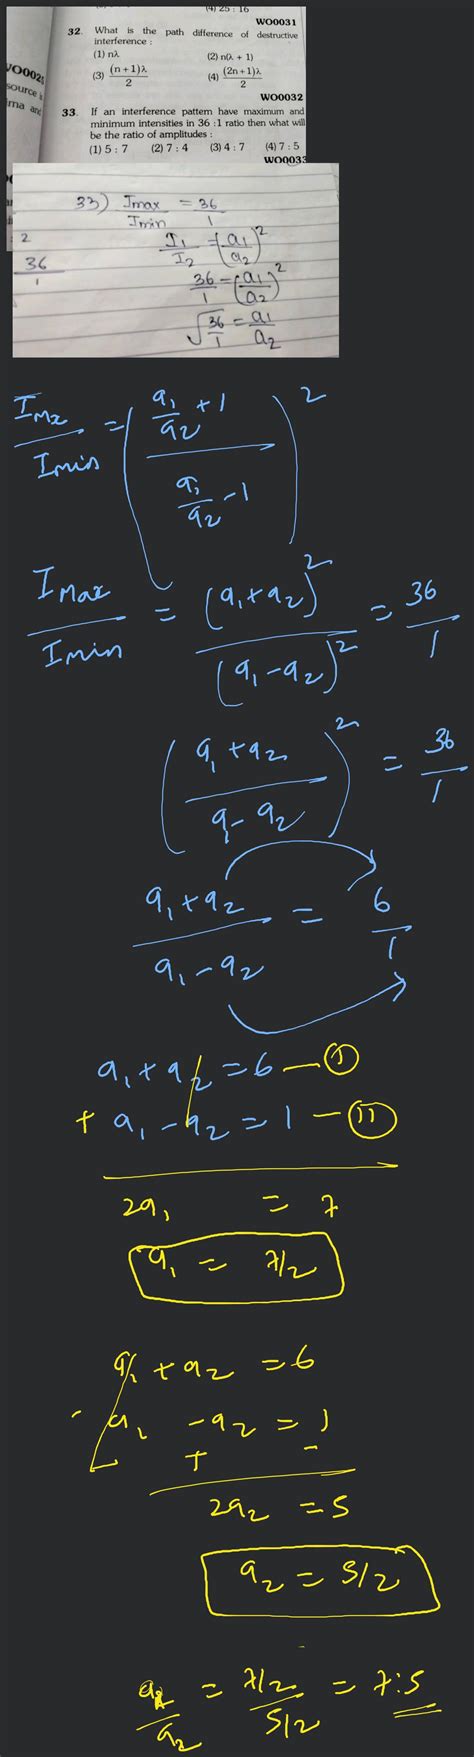 (4) 25 : 16
WO0031
32. What is the path difference of destructive
interference :
(1) nλ (2) n(λ + 1)
(3) (n+1)λ/2 (4) (2n+1)λ/2
WO0032
33. If an interference pattern have maximum and
minimum intensities in 36 : 1 ratio then what will
be the ratio of amplitudes :
(1) 5 : 7 (2) 7 : 4 (3) 4 : 7 (4) 7 : 5
WO0033
source
ma and
33) Imax/Imin = 36/1
I1/I2 = (a1/a2)²
36/1 = (a1/a2)²
√36/1 = a1/a2
2
36/1
IMx/Imin = ((a1/a2 + 1)/(a1/a2 - 1))²
IMax/Imin = (a1+a2)²/(a1-a2)² = 36/1
((a1+a2)/(a-a2))² = 36/1
(a1+a2)/(a1-a2) = 6/1
a1+a2 = 6 — I
+ a1-a2 = 1 — II
2a1 = 7
a1 = 7/2
a1 + a2 = 6
a2 - a2 = 1
+ -
2a2 = 5
a2 = 5/2
/a2 = 7/2/5/2 = 7:5